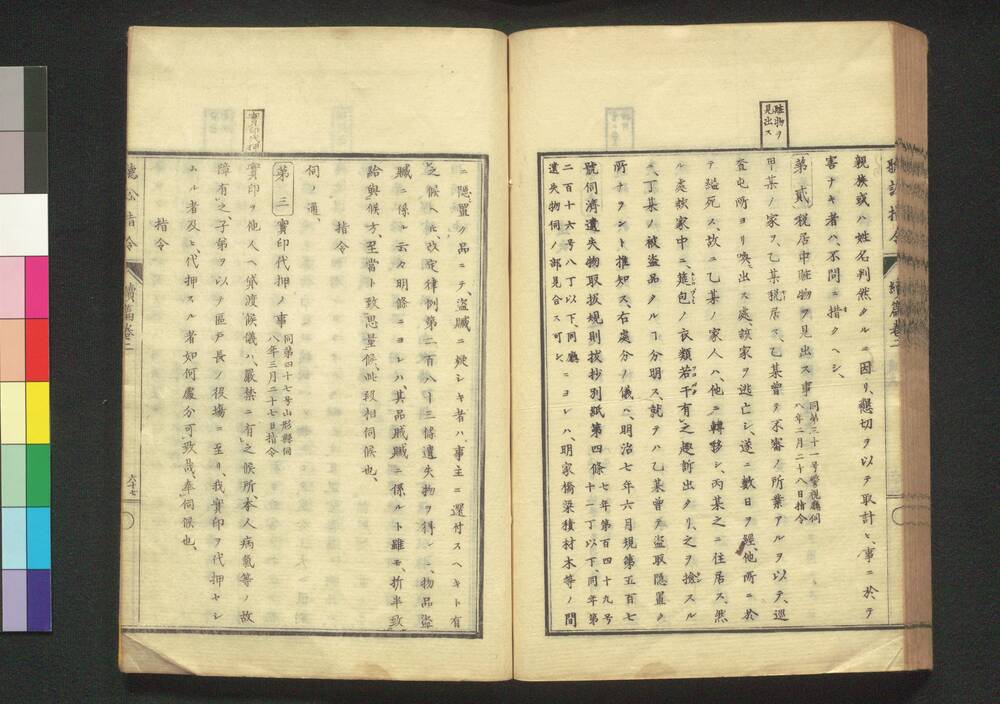 賍物ヲ
見出ス
親族或ハ姓名判然タルニ因リ、懇切ヲ以テ取計ヒ、事ニ於テ
害ナキ者ハ、不問ニ措クヘシ、
第貳 税居中賍物ヲ見出ス事 同第三十一号警視廳伺
八年二月二十八日指令
甲某ノ家ヲ、乙某税居ス、乙某曾テ不審ノ所業アルヲ以テ、巡
査屯所ヨリ喚出ス處、該家ヲ逃亡シ、遂ニ數日ヲ經、他所ニ於
テ縊死ス、故ニ乙某ノ家人ハ、他ニ轉移シ、丙某之ニ住居ス、然
ル處該家中ニ、莚包ノ衣類若干有之趣訴出タリ、之ヲ撿スル
ニ、丁某ノ被盗品タルヿ分明ス、就テハ乙某曾テ盗取隠置ク
所ナラント推知ス、右處分ノ儀ハ、明治七年六月規第五百七
號伺濟遺失物取扱規則抜抄別紙第四條 七年第百四十九号
十一丁以下、同年第
二百十六号八丁以下、同廳
遺失物伺ノ部見合ス可シ、ニヨレハ、明家橋梁積材木等ノ間
聽訟指令 續篇巻二
ニ隠置ク品ニテ、盗贓ニ疑シキ者ハ、事主ニ還付スヘキト有
之候ヘ𪜈、改定律例第二百八十三條遺失物ヲ得ン、物品盗
贓ニ係レ云々明條ニヨレハ、其品贓贓ニ係ルト雖モ、折半致
給與候方、至當ト致思量候、此段相伺候也、
指令
伺ノ通、
實印代押
第三 實印代押ノ事 同第四十七号山形縣伺
八年三月二十七日指令
實印ヲ他人ヘ貸渡候儀ハ、嚴禁ニ有之候所、本人病氣等ノ故
障有之、子弟ヲ以テ區戸長ノ役場ニ至リ、我實印ヲ代押セシ
ムル者及ヒ、代押スル者如何處分可致哉、奉伺候也、
指令
聽訟指令 續篇巻二 六十七